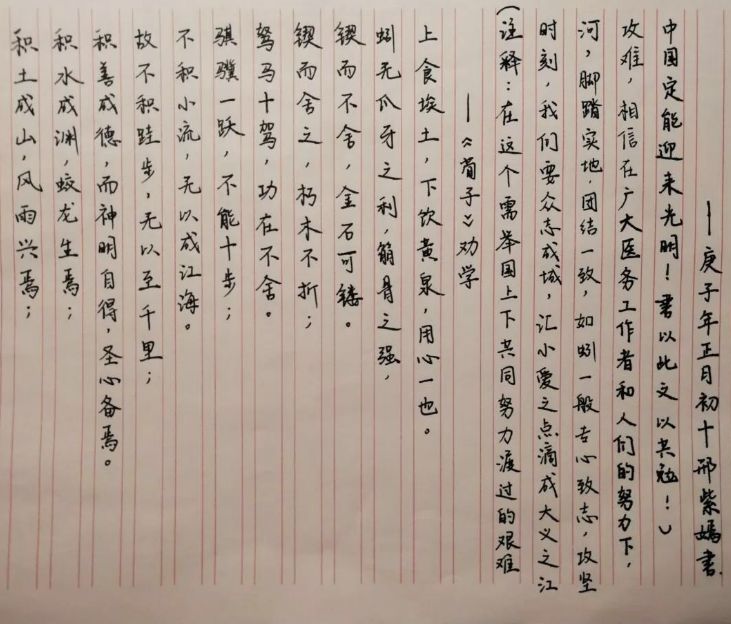 积土成山，风雨兴焉；
积水成渊，蛟龙生焉；
积善成德，而神明自得，圣心备焉。
故不积跬步，无以至千里；
不积小流，无以成江海。
骐骥一跃，不能十步；
驽马十驾，功在不舍。
锲而舍之，朽木不折；
锲而不舍，金石可镂。
蚓无爪牙之利，筋骨之强，
上食埃土，下饮黄泉，用心一也。
——《荀子》劝学
(注释：在这个需举国上下共同努力渡过的艰难
时刻，我们要众志成城，汇小爱之点滴成大义之江
河，脚踏实地，团结一致，如蚓一般专心致志，攻坚
攻难，相信在广大医务工作者和人们的努力下，
中国定能迎来光明！书以此文以共勉！)
——庚子年正月初十邢紫嫣书.